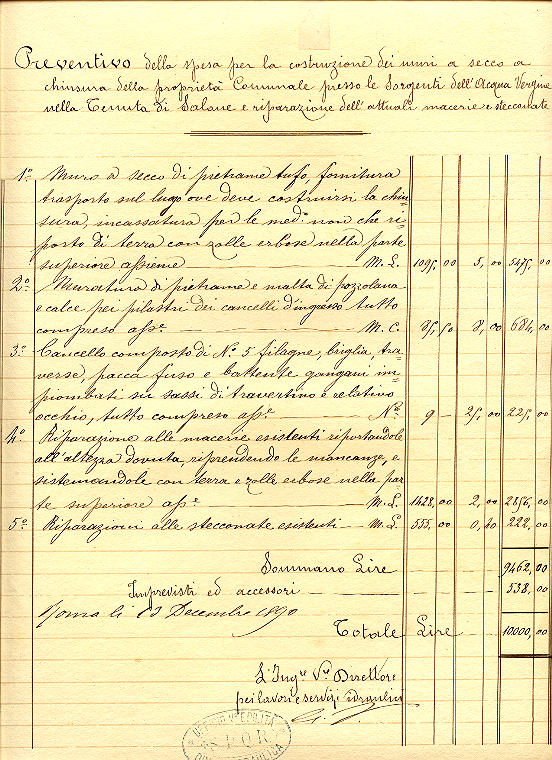 Preventivo della spesa per la costruzione dei muri a secco a
chiusura della proprietà Comunale presso le Sorgenti dell'Acqua Vergine
nella Tenuta di Salone e riparazione dell'attuali macerie e stecconate
1º Muro a secco di pietrame tufo, fornitura
trasporto sul luogo ove deve costruirsi la chiu=
sura, incassatura per le med.e non che ri=
porto di terra con zolle erbose nella parte
superiore assieme M. L. 1095,00 5,00 5475,00
2º Muratura di pietrame e malta di pozzolana
e calce pei pilastri dei cancelli d'ingresso tutto
compreso ass.e M. C. 85,50 8,00 684,00
3º Cancello composto di Nº 5 filagne, briglia, tra=
verse, pacca fuso e battente gangani im=
piombati su sassi di travertino e relativo
occhio, tutto compreso ass.e Nº 9 — 25,00 225,00
4º Riparazione alle macerie esistenti riportandole
all'altezza dovuta, riprendendo le mancanze, e
sistemandole con terra e zolle erbose nella par
te superiore ass.e M. L. 1428,00 2,00 2856,00
5º Riparazioni alle stecconate esistenti — M. L. 555,00 0,40 222,00
Sommano Lire 9462,00
Imprevisti ed accessori 538,00
Roma li 13 Decembre 1890
Totale Lire 10000,00
L'Ing.re V.ce Direttore
pei lavori e servizi idraulici
S.P.Q.R.